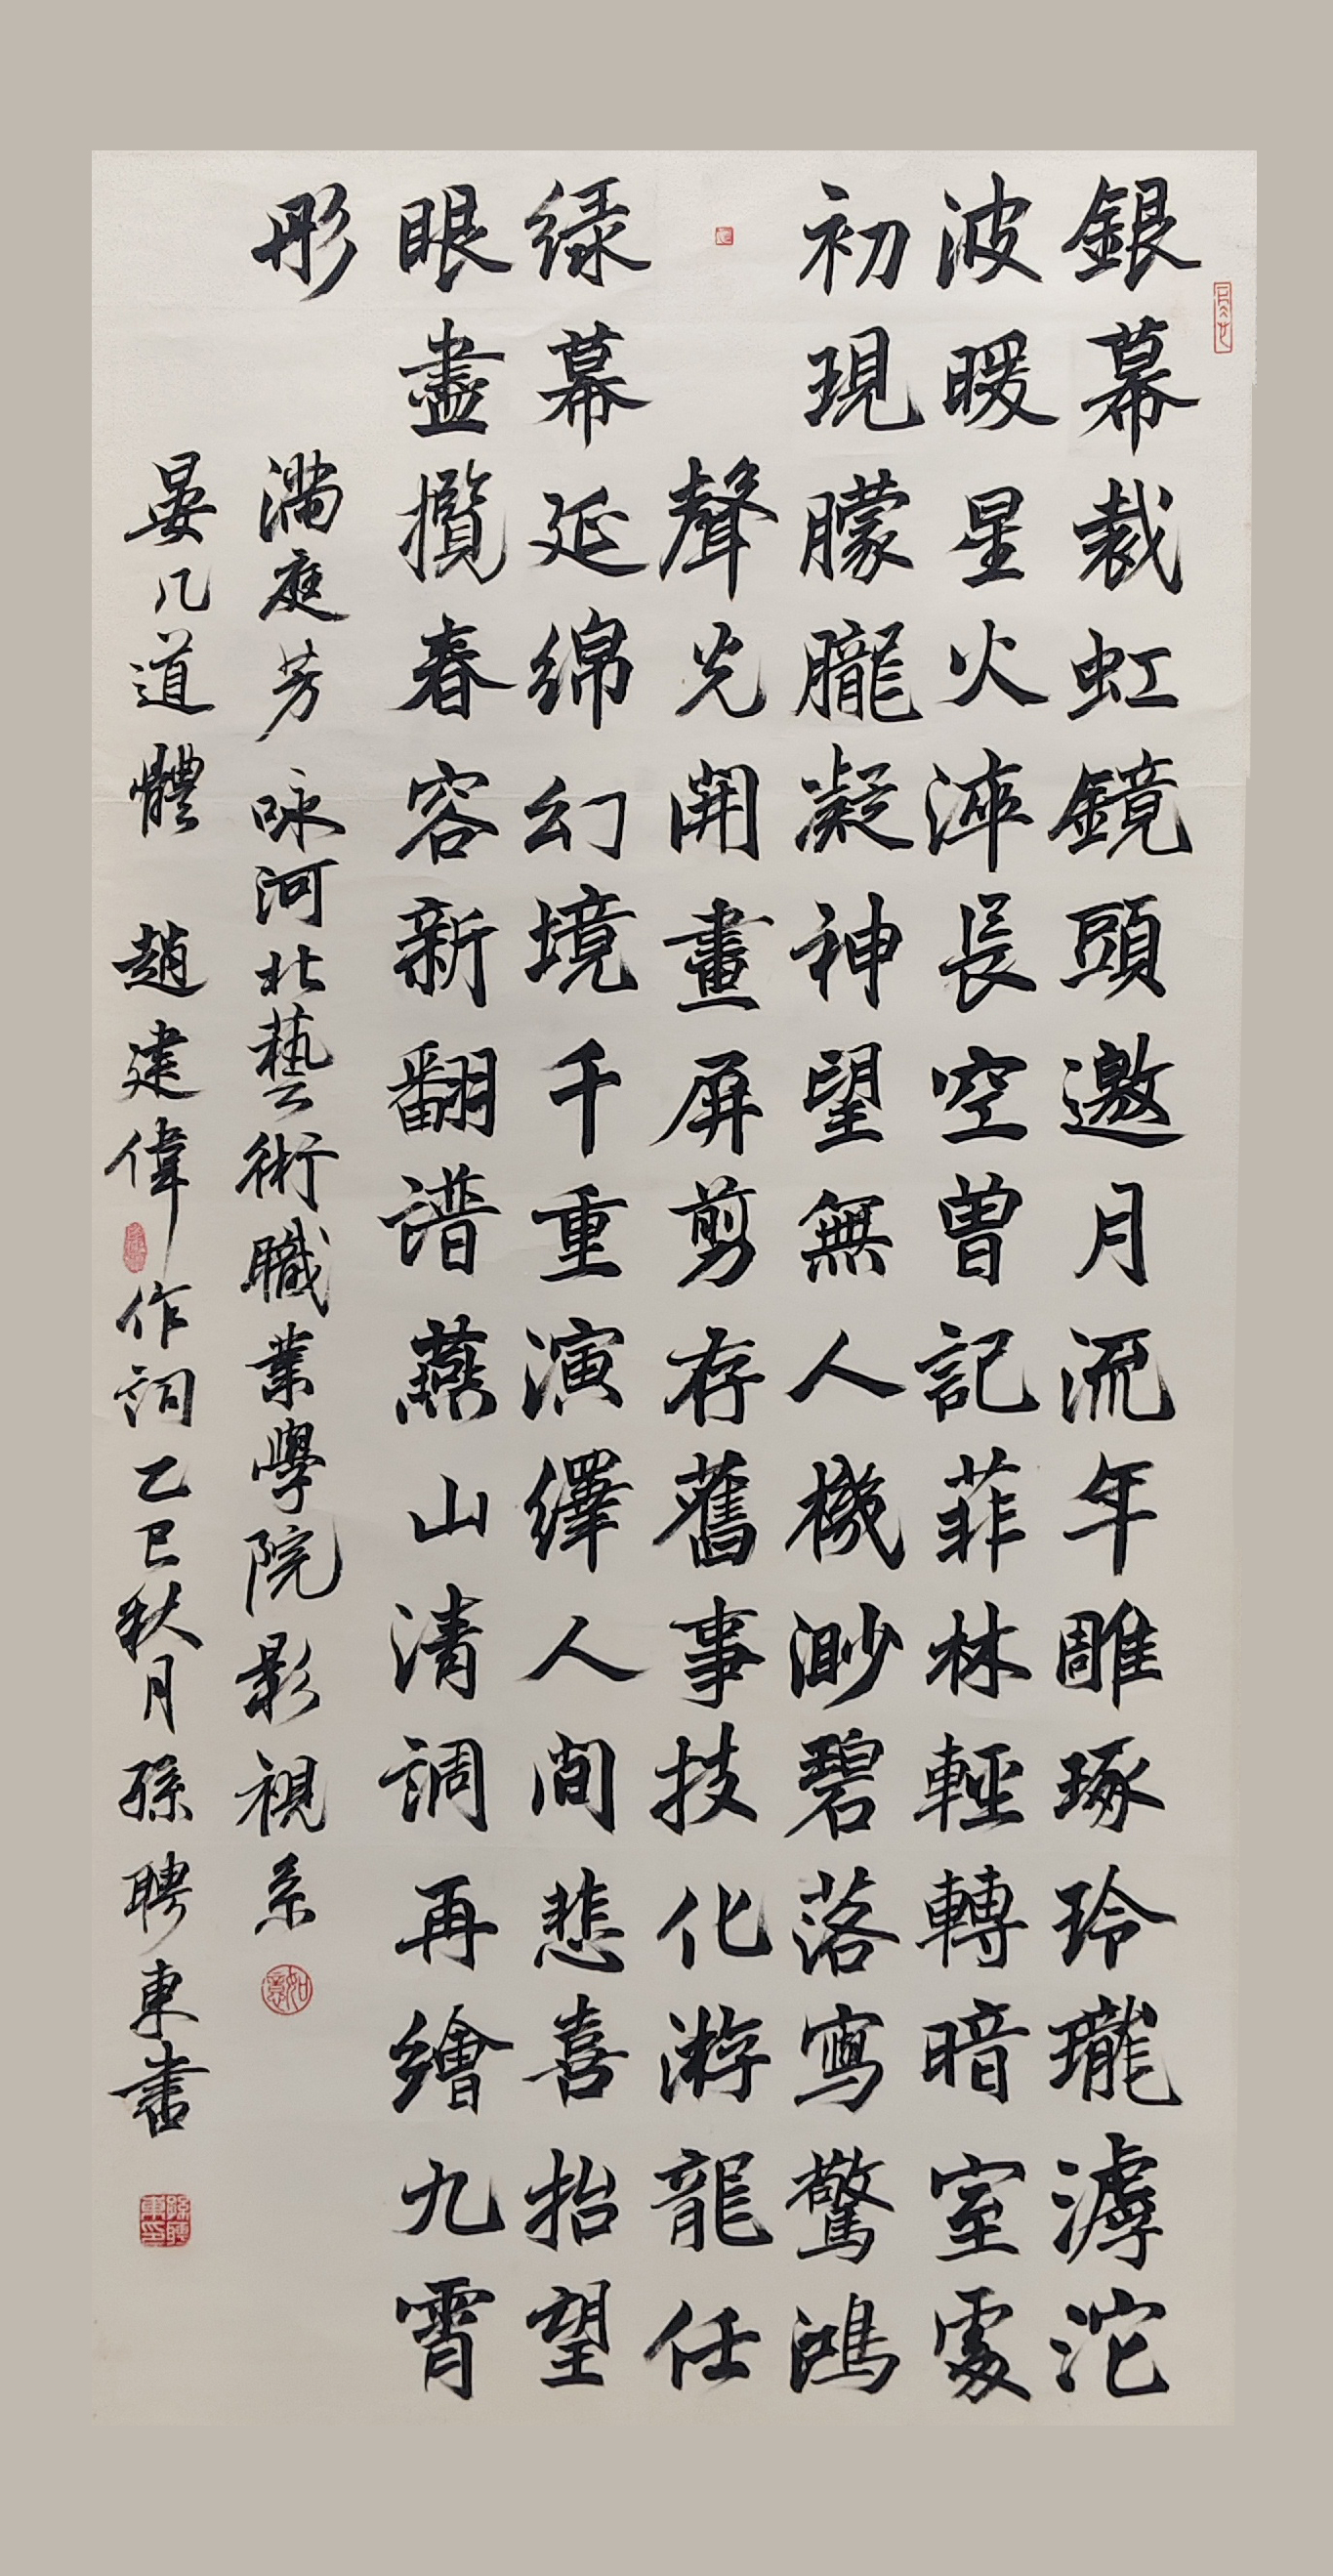 銀幕裁虹鏡頭邀月流年雕琢玲瓏滹沱
波暖星火淬長空曾記菲林輕轉暗室處
初現朦朧凝神望無人機渺碧落寫驚鴻
聲光開畫屏剪存舊事技化游龍任
绿幕延绵幻境千重演繹人间悲喜抬望
眼盡攬春容新翻谱燕山清調再繪九霄
彤
滿庭芳咏河北藝術職業學院影視系
如意
晏几道體 趙建偉作詞乙巳秋月孫聘東書
孫聘東印